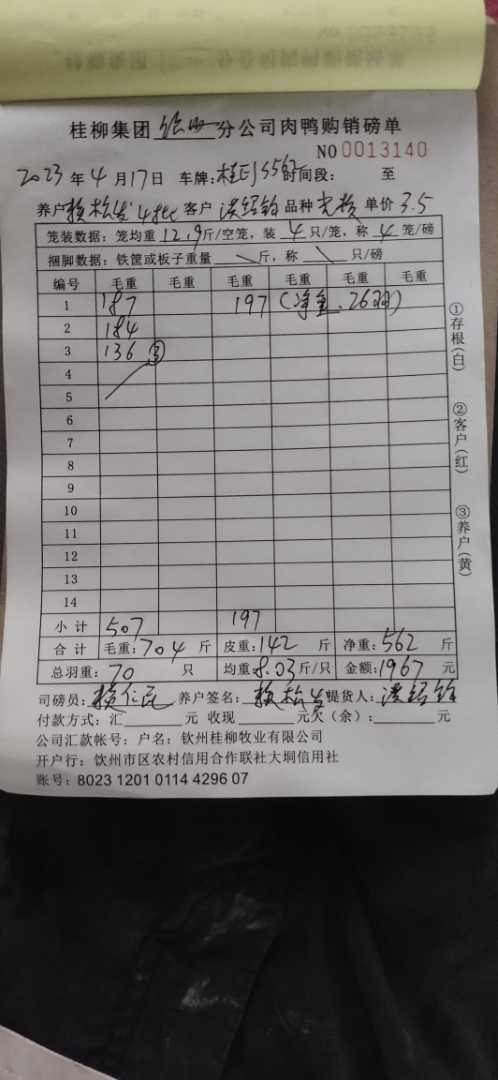 桂柳集团 分公司肉鸭购销磅单
NO 0013140
2023 年 4 月 17 日 车牌: 时间段: 至
养户 赖松发 4批 客户 洪绍铃 品种 单价 3.5
笼装数据: 笼均重 12.9 斤/空笼, 装 4 只/笼, 称 4 笼/磅
捆脚数据: 铁筐或板子重量 \ 斤, 称 \ 只/磅
编号 毛重 毛重 毛重 毛重 毛重 毛重
1 187 197 (净重 26羽)
2 184
3 136 ③
4
5
6
7
8
9
10
11
12
13
14
小计 507 197
合计 毛重: 704 斤 皮重: 142 斤 净重: 562 斤
总羽重: 70 只 均重 8.03 斤/只 金额: 1967 元
司磅员: 赖仁民 养户签名: 赖松发 提货人: 洪绍铃
付款方式: 汇 元 收现 元欠(余): 元
公司汇款帐号: 户名: 钦州桂柳牧业有限公司
开户行: 钦州市区农村信用合作联社大垌信用社
账号: 8023 1201 0114 4296 07
①存根(白)
②客户(红)
③养户(黄)